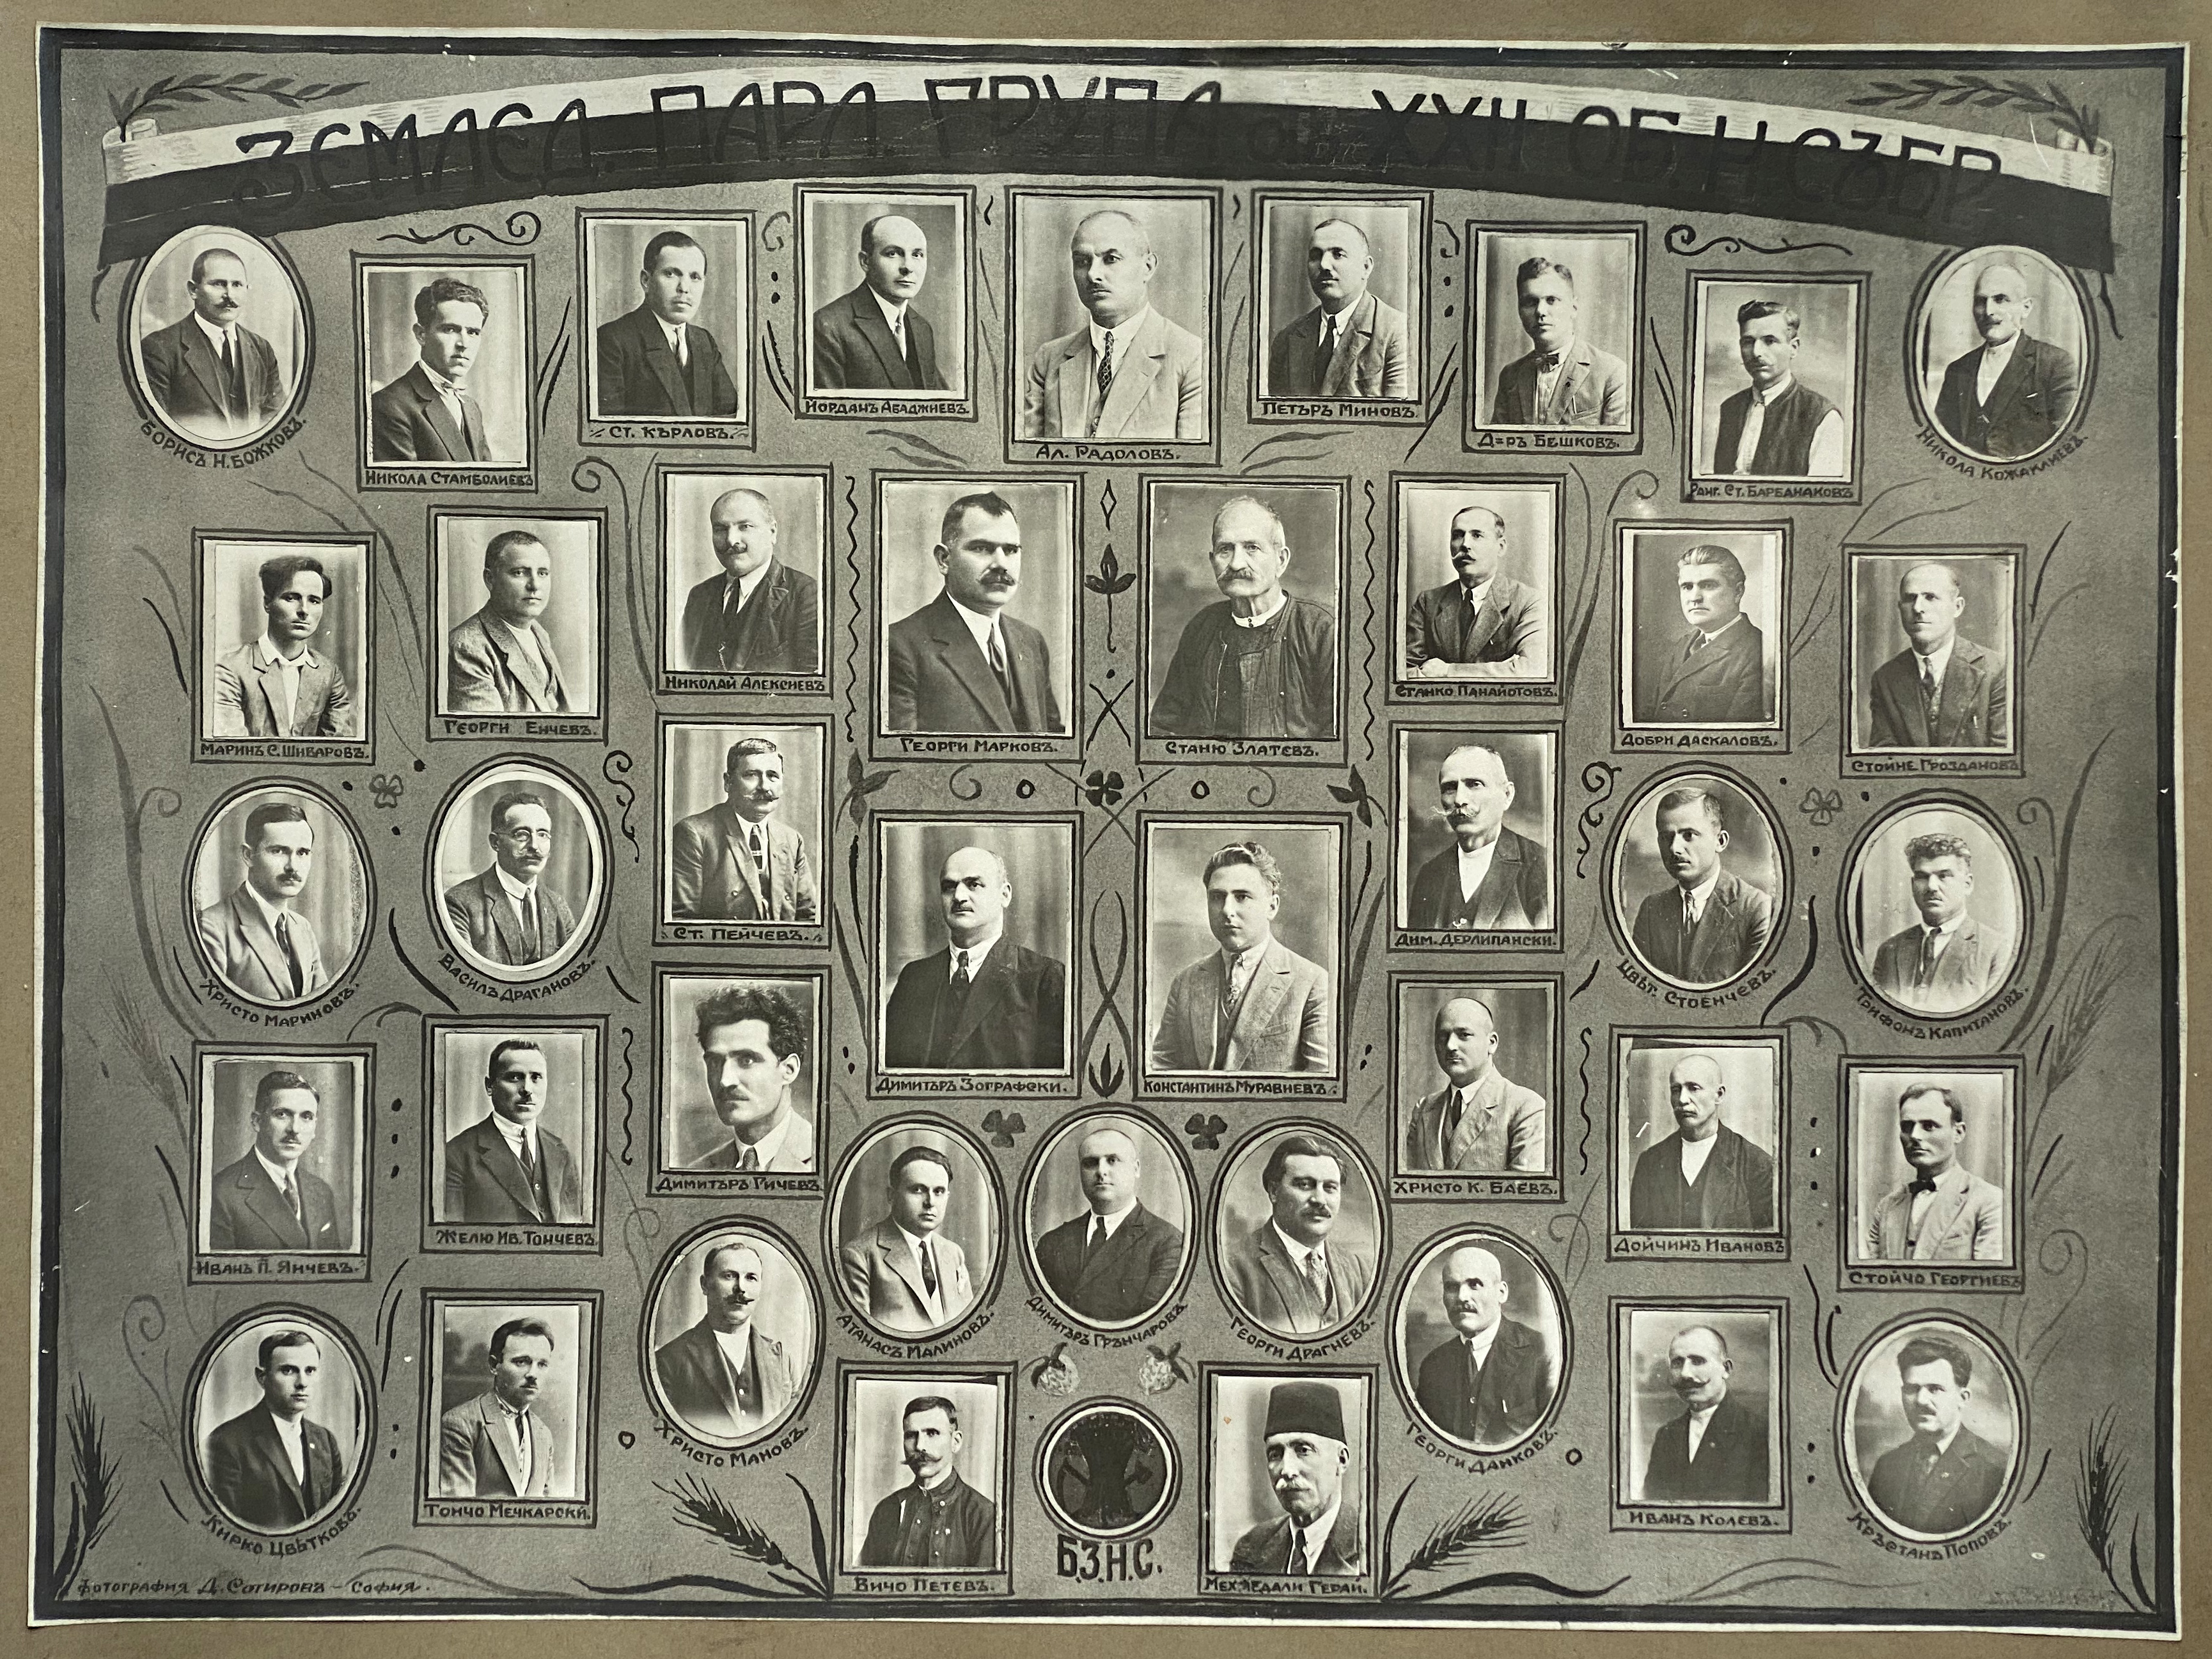 ЗЕМЛЕД. ПАРЛ. ГРУПА ОТ XXII ОБ. Н. СѪБР.
БОРИСЪ Н. БОЖКОВЪ.
НИКОЛА СТАМБОЛИЕВЪ
СТ. КЪРЛОВЪ.
ЙОРДАНЪ АБАДЖИЕВЪ.
АЛ. РАДОЛОВЪ.
ПЕТЪРЪ МИНОВЪ.
Д=РЪ БЕШКОВЪ.
РАНГ. СТ. БАРБАНАКОВЪ
НИКОЛА КОЖАКЛИЕВЪ.
МАРИНЪ С. ШИВАРОВЪ.
ГЕОРГИ ЕНЧЕВЪ.
НИКОЛАЙ АЛЕКСИЕВЪ
ГЕОРГИ МАРКОВЪ.
СТАНЮ ЗЛАТЕВЪ.
СТАНКО ПАНАЙОТОВЪ.
ДОБРИ ДАСКАЛОВЪ.
СТОЙНЕ ГРОЗДАНОВЪ
ХРИСТО МАРИНОВЪ.
ВАСИЛЪ ДРАГАНОВЪ.
СТ. ПЕЙЧЕВЪ.
ДИМ. ДЕРЛИПАНСКИ.
ЦВѢТ. СТОЕНЧЕВЪ.
ТРИФОНЪ КАПИТАНОВЪ.
ДИМИТЪРЪ ЗОГРАФСКИ.
КОНСТАНТИНЪ МУРАВИЕВЪ.
ИВАНЪ П. ЯНЧЕВЪ.
ЖЕЛЮ ИВ. ТОНЧЕВЪ.
ДИМИТЪРЪ ГИЧЕВЪ.
ХРИСТО К. БАЕВЪ.
ДОЙЧИНЪ ИВАНОВЪ
СТОЙЧО ГЕОРГИЕВЪ
АТАНАСЪ МАЛИНОВЪ.
ДИМИТЪРЪ ГРЪНЧАРОВЪ.
ГЕОРГИ ДРАГНЕВЪ.
КИРКО ЦВѢТКОВЪ.
ТОНЧО МЕЧКАРСКИ.
ХРИСТО МАНОВЪ.
ГЕОРГИ ДАНКОВЪ.
ИВАНЪ КОЛЕВЪ.
КРЪСТАНЪ ПОПОВЪ.
ВИЧО ПЕТЕВЪ.
Б.З.Н.С.
МЕХМЕДАЛИ ГЕРАЙ.
Фотография Д. Сотировъ – София.